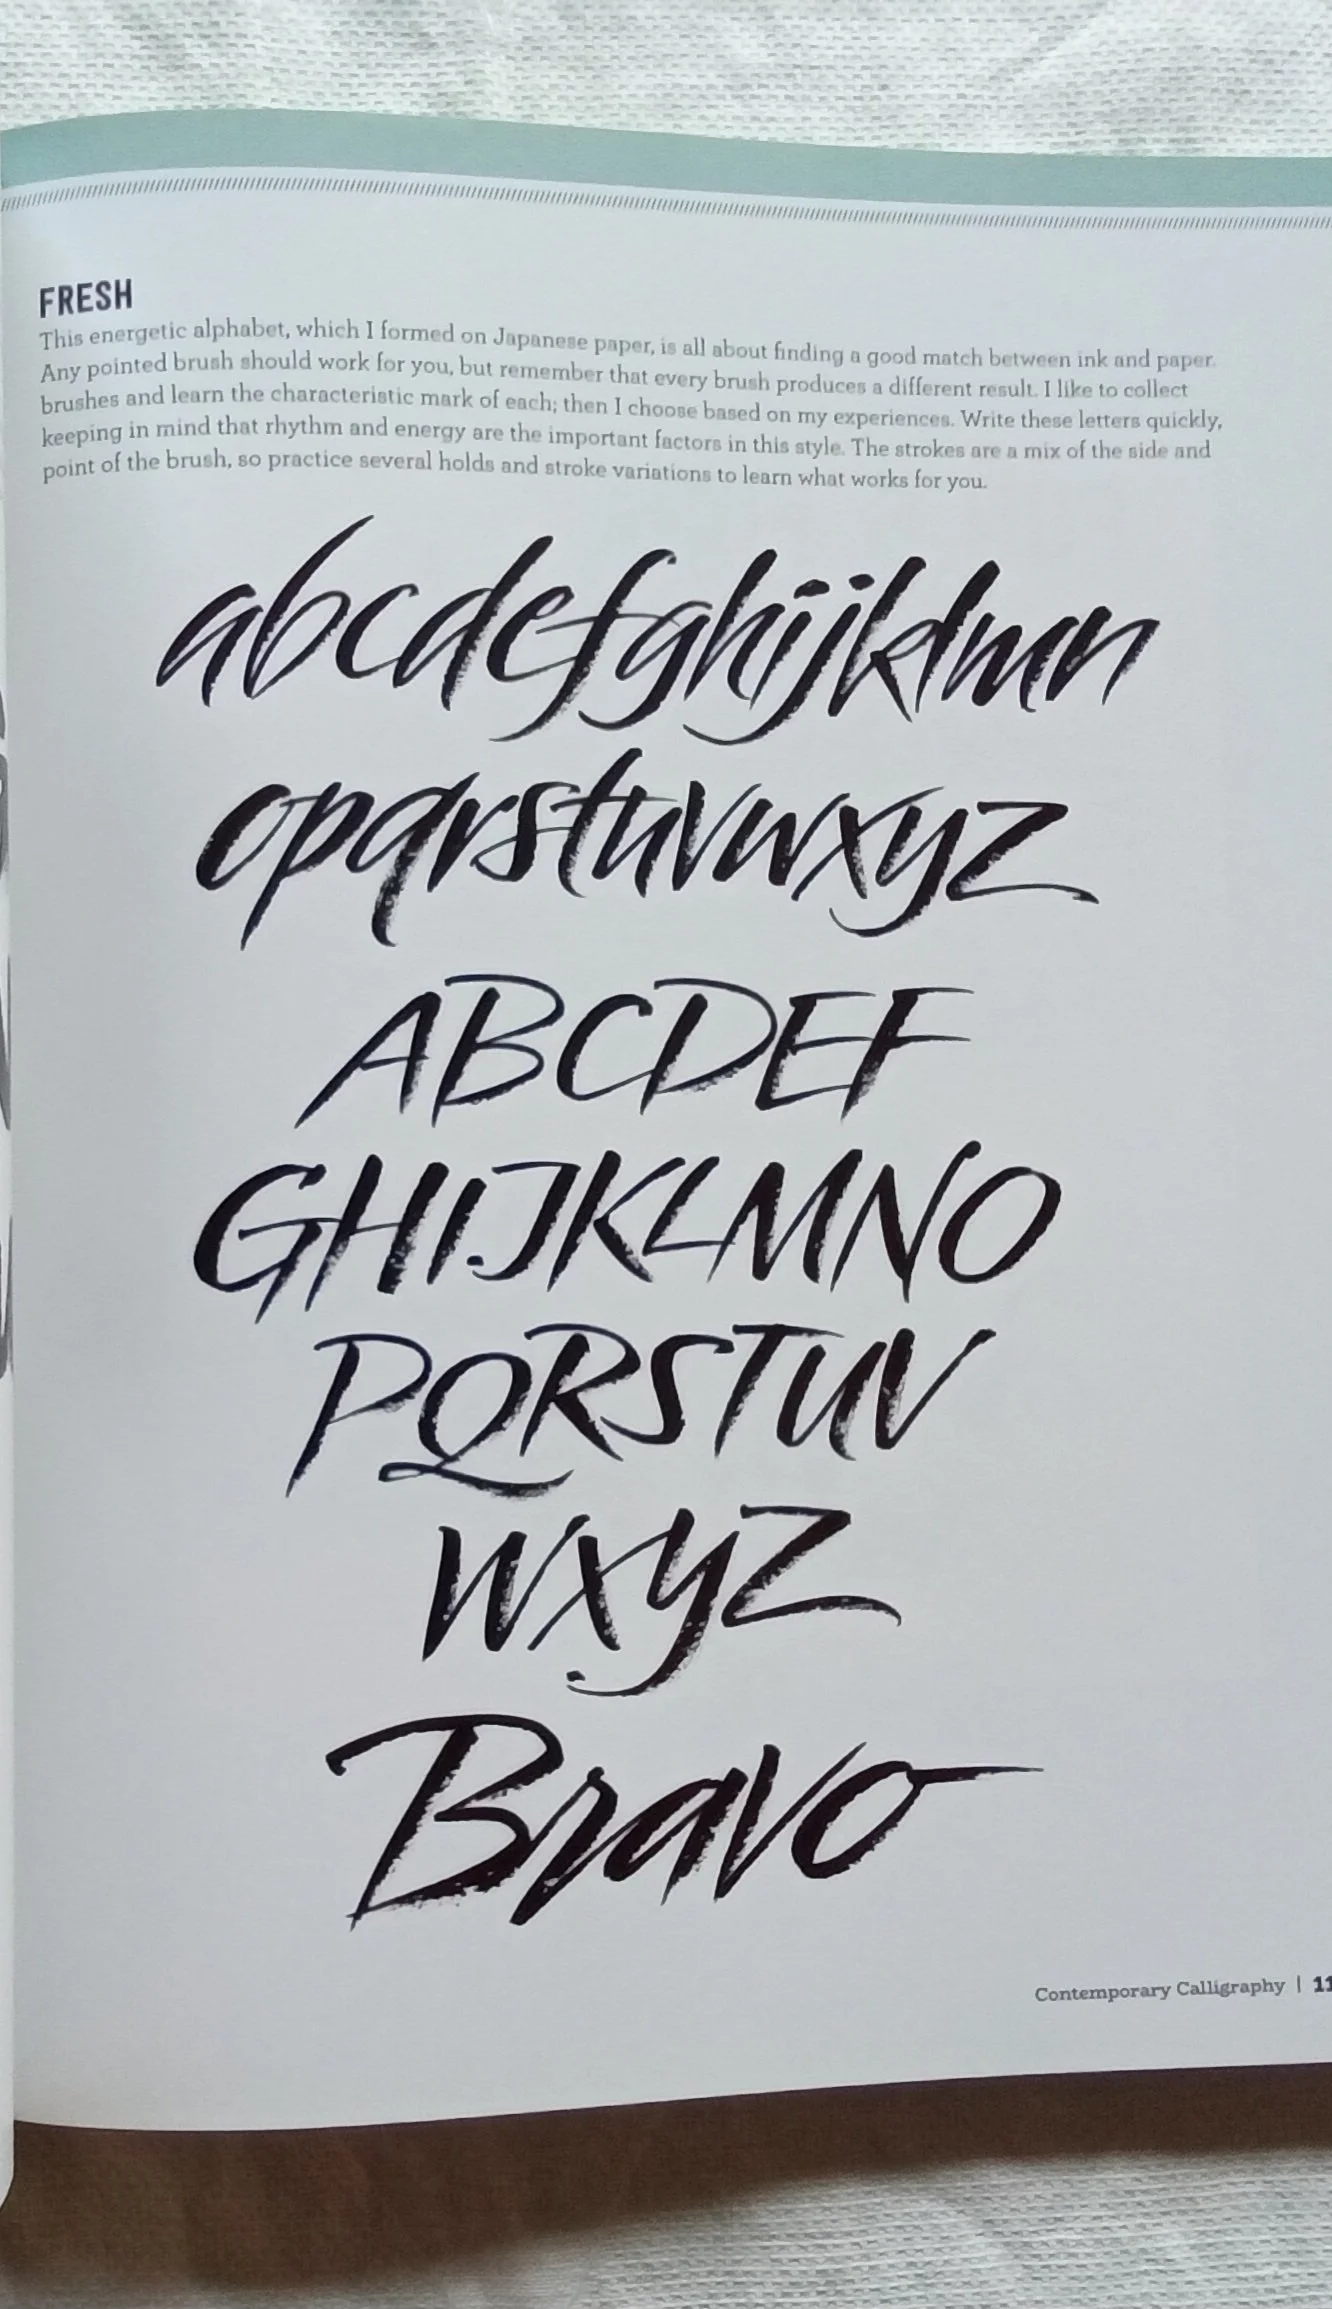 FRESH
This energetic alphabet, which I formed on Japanese paper, is all about finding a good match between ink and paper.
Any pointed brush should work for you, but remember that every brush produces a different result. I like to collect
brushes and learn the characteristic mark of each; then I choose based on my experiences. Write these letters quickly,
keeping in mind that rhythm and energy are the important factors in this style. The strokes are a mix of the side and
point of the brush, so practice several holds and stroke variations to learn what works for you.
abcdefghijklmn
opqrstuvwxyz
ABCDEF
GHIJKLMNO
PQRSTUV
WXYZ
Bravo
Contemporary Calligraphy |